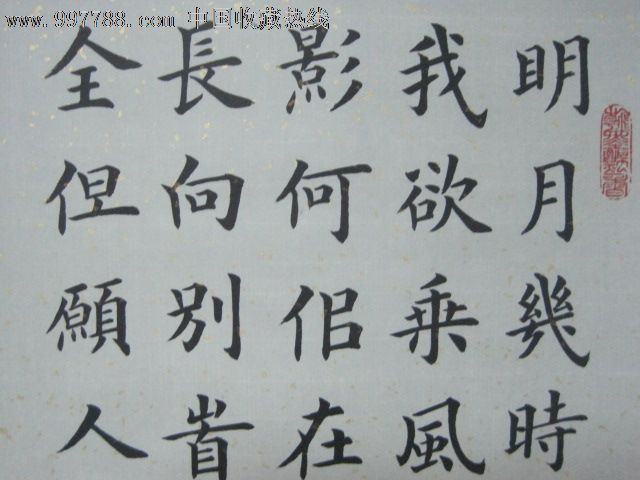 www.997788.com 中国收藏热线
明月幾時
我欲乗風
影何佀在
長向別旹
全但願人